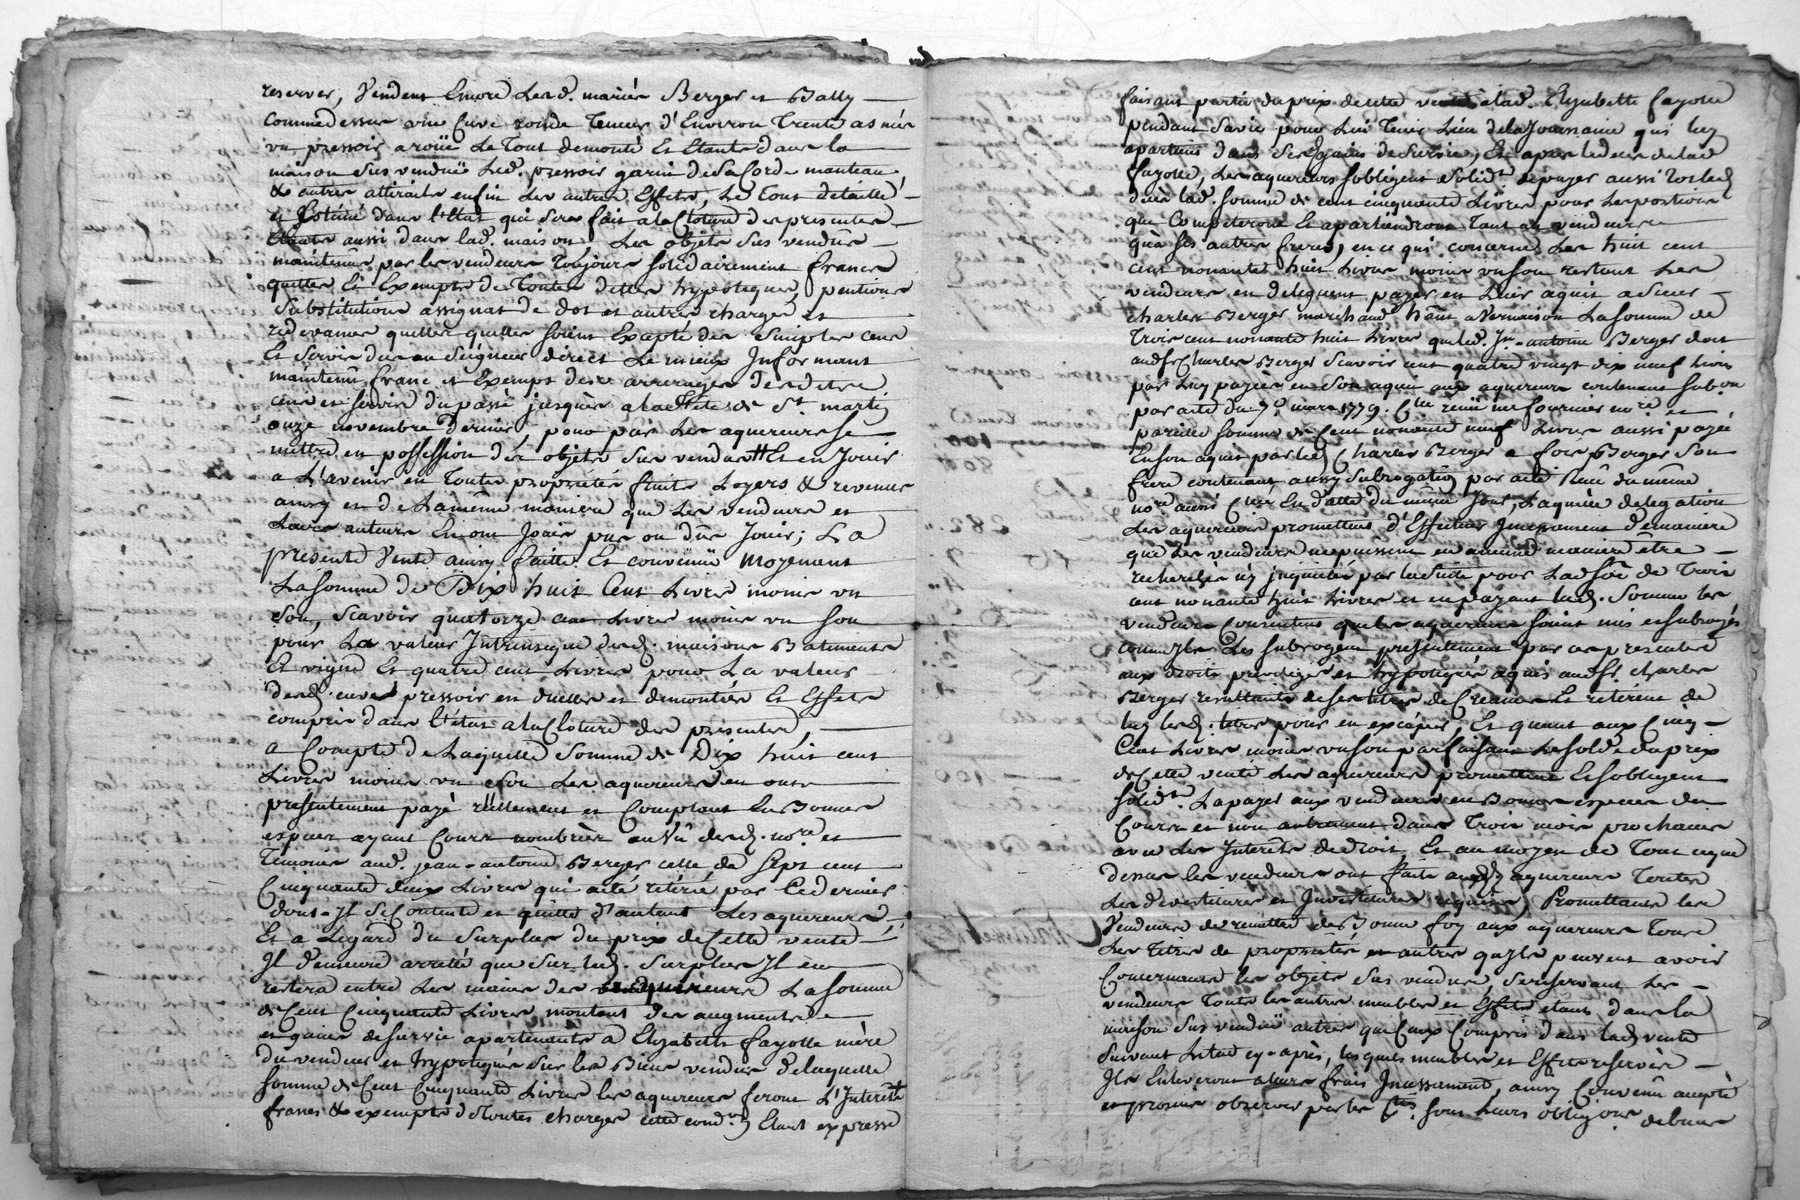 reserver, Vendent Encore Lesd. mariés Berger et Bally
comme dessus une Cuve ronde Teneur d'Environ Trente asnées
un pressoir a roüe Le Tout demonté Et Etants dans la
maison sus vendüe Led. pressoir garni de sa Corde manteau
& autres attirails enfin Les autres Effets, Le Tout detaillé
et Estimé dans l'Etat qui sera fait a la Cloture des presentes
Etants aussi dans lad. maison, Les objets sus vendûs
maintenus par les vendeurs Toujours solidairement francs
quittes Et Exempts de Toutes dettes hypoteques, pentions
Substitutions assignat de dot et autres charges et
redevances quelles quelles soient Excepté des Simples cens
Et Servis dus au Seigneur direct Le mieux Informant
maintenu franc et Exempt des arrerages desdits
cens et servis du passé jusques a la fête de St. martin
onze novembre dernier, pour par Les aquereurs se
mettre en possession des objets sus vendus Et en Jouir
a L'avenir en Toute propriété fruits Loyers & revenus
ainsy et de La même maniere que Les vendeurs et
Leurs auteurs En ont Joüis pus ou dûs Jouir; La
presente Vente ainsy faitte Et convenüe Moyenant
La somme de Dix huit Cent Livres moins un
Sou, Scavoir quatorze cent Livres moins un sou
pour La valeur Intrinseque desd. maisons Batiments
Et vigne Et quatre cent Livres pour La valeur
desd. cuve pressoir et demontés Et Effets
compris dans l'Etat a la Cloture des presentes,
A Compte de Laquelle Somme de Dix huit cent
Livres moins un Sou Les aquereurs en ont
presentement payé réellement et Comptant En Bonnes
especes ayant Cours nombrées au Vû desd. nores et
Temoins aud. jean-antoine Berger celle de Sept cent
Cinquante deux Livres qui a eté retirée par Ce dernier
dont Il se Contente et quitte d'autant Les aquereurs,
Et a L'egard du Surplus du prix de Cette vente
Il demeure arreté que sur led. Surplus Il en
restera entre Les mains des aquereurs La somme
de Cent Cinquante Livres montant des augments
et gains de survie apartenants a Elizabeth fayolle mère
du vendeur et hypotequés Sur les Biens vendus de laquelle
somme de Cent Cinquante Livres les aquereurs feront L'Interêt
francs & exempts de Toutes charges cette condon. Etant expresse
faisant partie du prix de cette vente a lad. Elizabette fayolle
pendant sa vie pour Lui Tenir Lieu de la Jouissance qui luy
apartient dans Ses gains de Survie, Et après le deces de lad.
fayolle, Les aquereurs s'obligent solidt. de payer aussi
lad. somme de cent cinquante Livres pour Les portions
qui Competeront Et apartiendront Tant au vendeur
qu'a Ses autres freres, en ce qui concerne Les huit cent
cent nonante huit Livres moins un sou restant Les
vendeurs en deleguent payer en Leur aquit a Sieur
charles Berger marchand habt. a Vernaison La somme de
Trois cent nonante huit Livres que led. Jn. antoine Berger doit
aud. Sr. Charles Berger Scavoir cent quatre vingt dix neuf Livres
par Luy payées en Son aquit aux aquereurs contenant Subon.
par acte du 7e mars 1779. Cllé reçu me fournier nore et
pareille somme de Cent nonante neuf Livres aussi payée
En son aquit par led. Charles Berger a Berger Son
frere contenant aussy subrogation par acte Reçû du même
nore aussi Cllé En datte du même Jour, Laquelle delegation
Les aquereurs promettent d'Effectuer Incessament de maniere
que Les vendeurs ne puissent en aucune maniere être
recherchés n'y inquietés par la suitte pour Lad. sôe de Trois
cent nonante huit Livres et en payant lad. Somme les
vendeurs Consentent que les aquereurs soient mis et subrogés
comme Ils Les subrogent presentement par ces presentes
aux droits privileges et hypoteques aquis aud. Sr. Charles
Berger resultants de ses titres de Creance Et retirent de
luy lesd. titres pour en exciper, Et quant aux Cinq
Cent Livres moins un sou parfaisant Le solde du prix
de Cette vente Les aquereurs promettent Et s'obligent
solidt. La payer aux vendeurs en Bonnes especes de
Cours et non autrement dans Trois mois prochains
avec Les Interets de droit Et au moyen de Tout ce que
dessus les vendeurs ont faits auxd. aquereurs Toutes
Les devestitures et Investitures requises, Promettants les
Vendeurs de remettre de Bonne foy aux aquereurs Tous
Les Titres de propriété et autres qu'Ils peuvent avoir
Concernants les objets Sus vendus, se reservant Les
vendeurs Tous les autres meubles et Effets etant dans la
maison Sus vendüe autres que Ceux Compris dans lad. vente
Suivant L'etat cy-après, lesquels meubles et Effets reservés
Ils Enleveront a leurs frais Incessament, ainsy Convenu accepté
et promis observer par les pties. sous Leurs obligons. de biens